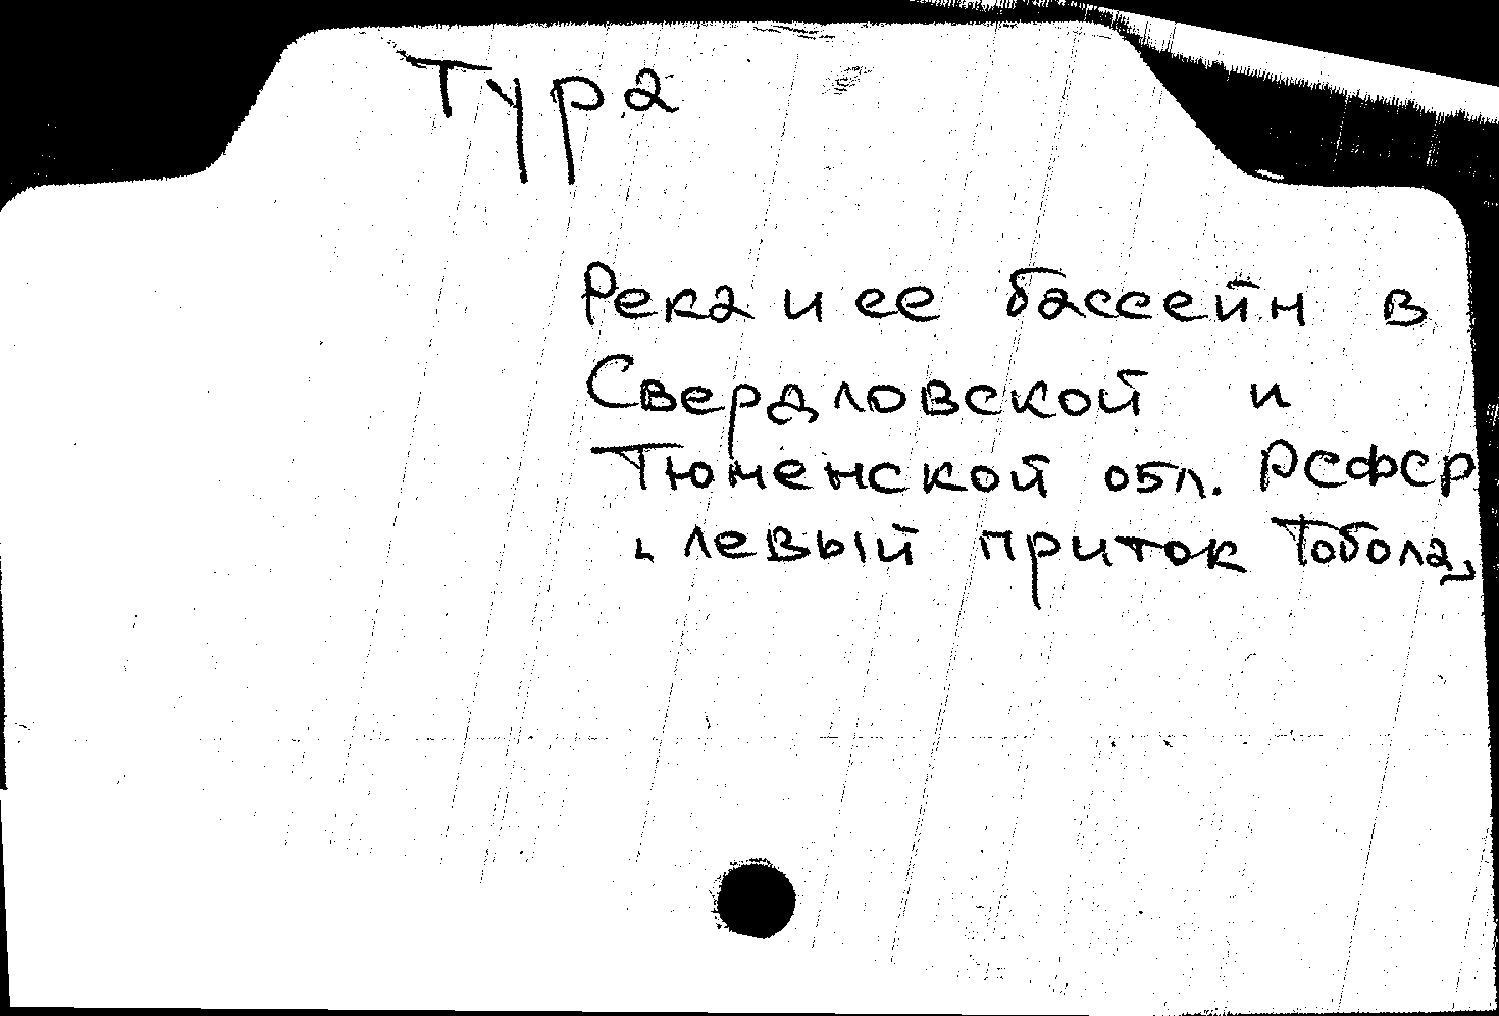 Тура
Река и ее бассейн в
Свердловской и
Тюменской обл. РСФСР
, левый приток Тобола,